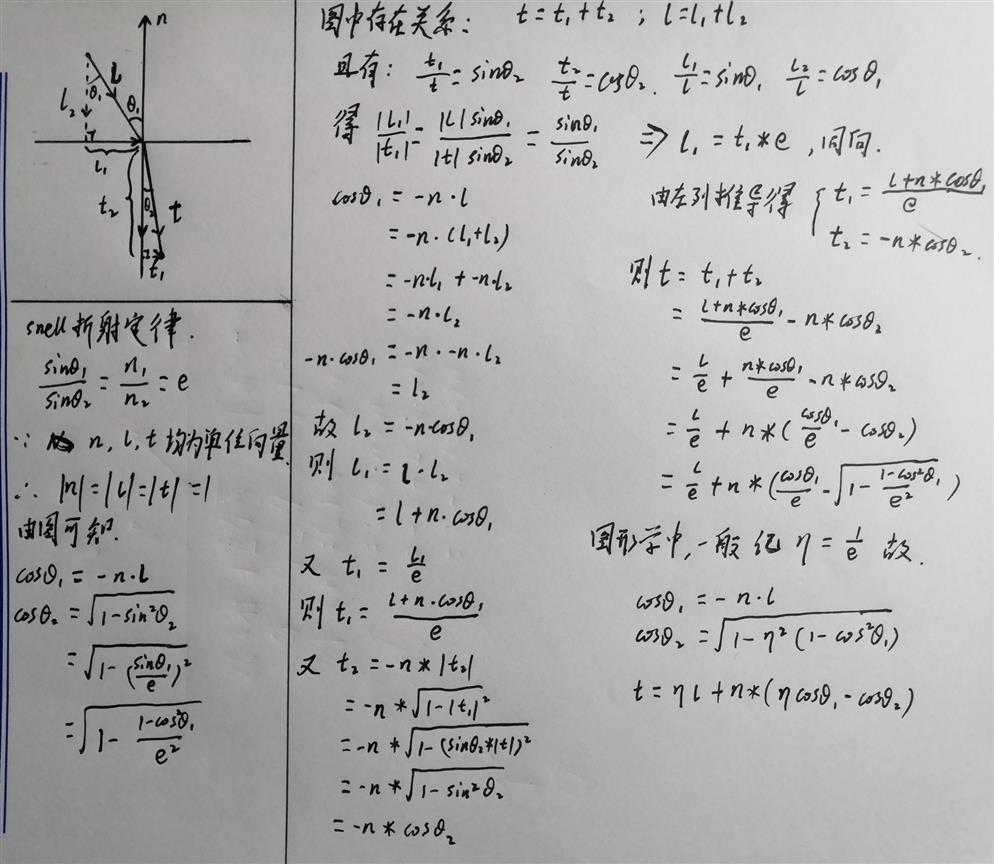 n
l
θ₁
θ₁
l₂
l₁
t₂
θ₂
t
t₁
snell 折射定律.
sinθ₁/sinθ₂ = n₁/n₂ = e
∵ n, l, t 均为单位向量
∴ |n|=|l|=|t|=1
由图可知.
cosθ₁ = -n·l
cosθ₂ = √(1-sin²θ₂)
= √(1-(sinθ₁/e)²)
= √(1- (1-cos²θ₁)/e²)
图中存在关系: t=t₁+t₂ ; l=l₁+l₂
且有: t₁/t = sinθ₂ t₂/t = cosθ₂. l₁/l = sinθ₁ l₂/l = cosθ₁
得 |l₁|/|t₁| = |l| sinθ₁/|t| sinθ₂ = sinθ₁/sinθ₂ ⇒ l₁ = t₁*e , 同向.
cosθ₁ = -n·l
= -n·(l₁+l₂)
= -n·l₁ + -n·l₂
= -n·l₂
-n·cosθ₁ = -n·-n·l₂
= l₂
故 l₂ = -n·cosθ₁
则 l₁ = l-l₂
= l+n·cosθ₁
又 t₁ = l₁/e
则 t₁ = (l+n·cosθ₁)/e
又 t₂ = -n*|t₂|
= -n*√(1-|t₁|²)
= -n*√(1-(sinθ₂*|t|)²)
= -n*√(1-sin²θ₂)
= -n*cosθ₂
由左列推导得 { t₁ = (l+n*cosθ₁)/e
t₂ = -n*cosθ₂.
则 t = t₁+t₂
= (l+n*cosθ₁)/e - n*cosθ₂
= l/e + n*cosθ₁/e - n*cosθ₂
= l/e + n*(cosθ₁/e - cosθ₂)
= l/e + n*(cosθ₁/e - √(1- (1-cos²θ₁)/e²))
图形学中, 一般 η = 1/e 故.
cosθ₁ = -n·l
cosθ₂ = √(1-η²(1-cos²θ₁))
t = ηl + n*(ηcosθ₁ - cosθ₂)